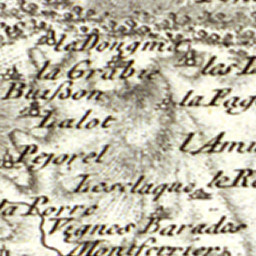 la Dougme
la Grabie
les
Buisson
la Fag
Lalot
l'Amu
Pejorel
Lesclaque
le Re
la Forre
Vignes Barades
Montferrier